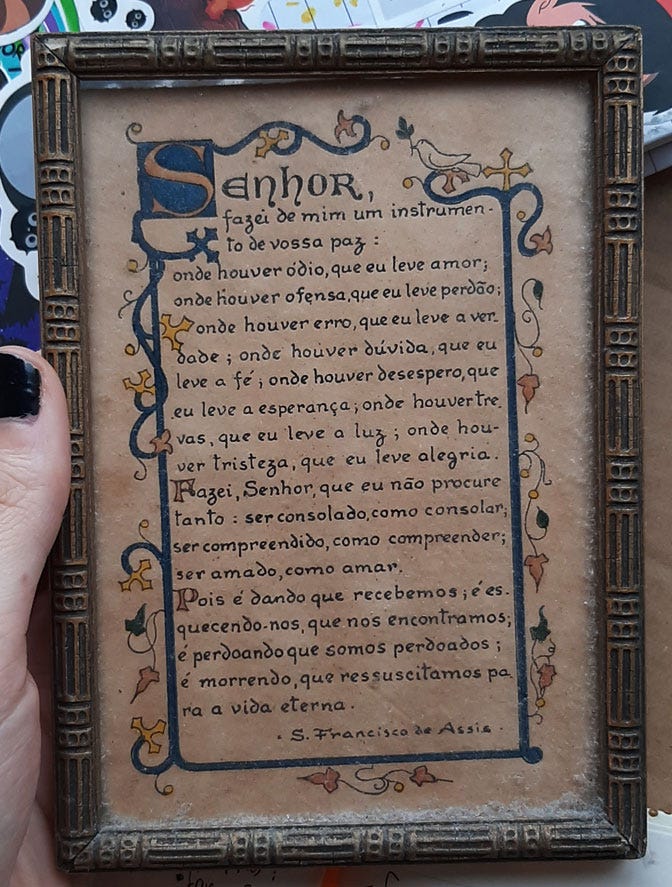 Senhor,
fazei de mim um instrumen-
to de vossa paz :
onde houver ódio, que eu leve amor;
onde houver ofensa, que eu leve perdão;
onde houver erro, que eu leve a ver-
dade ; onde houver dúvida, que eu
leve a fé ; onde houver desespero, que
eu leve a esperança ; onde houver tre-
vas, que eu leve a luz ; onde hou-
ver tristeza, que eu leve alegria.
Fazei, Senhor, que eu não procure
tanto : ser consolado, como consolar;
ser compreendido, como compreender;
ser amado, como amar.
Pois é dando que recebemos ; é es-
quecendo-nos, que nos encontramos;
é perdoando que somos perdoados ;
é morrendo, que ressuscitamos pa-
ra a vida eterna.
- S. Francisco de Assis -